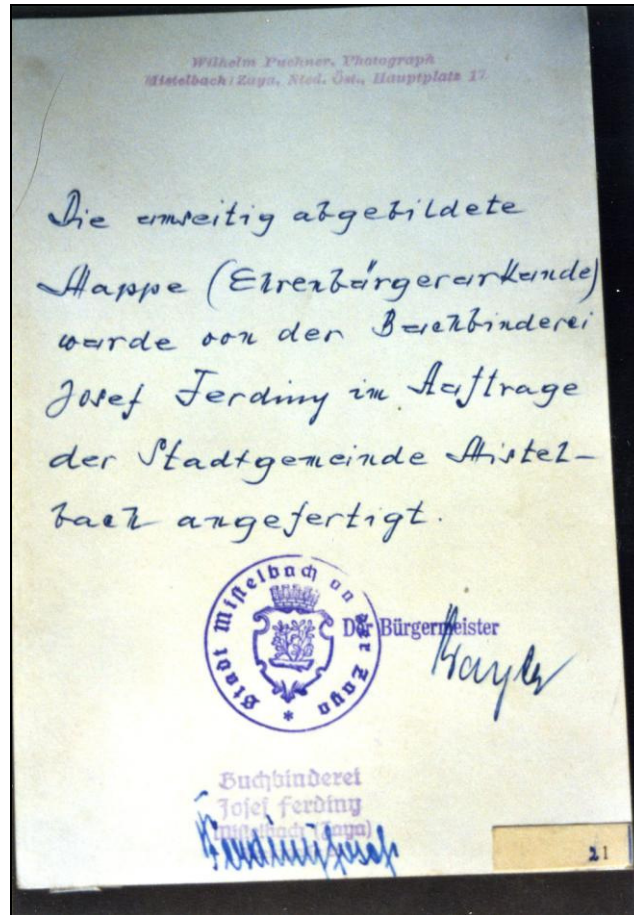 Wilhelm Puchner, Photograph
Mistelbach/Zaya, Nied. Öst., Hauptplatz 17
Die umseitig abgebildete
Mappe (Ehrenbürgerurkunde)
wurde von der Buchbinderei
Josef Ferdiny im Auftrage
der Stadtgemeinde Mistel-
bach angefertigt.
Stadt Mistelbach an der Zaya *
Der Bürgermeister
Bayer
Buchbinderei
Josef Ferdiny
Mistelbach (Zaya)
Ferdiny Josef
21